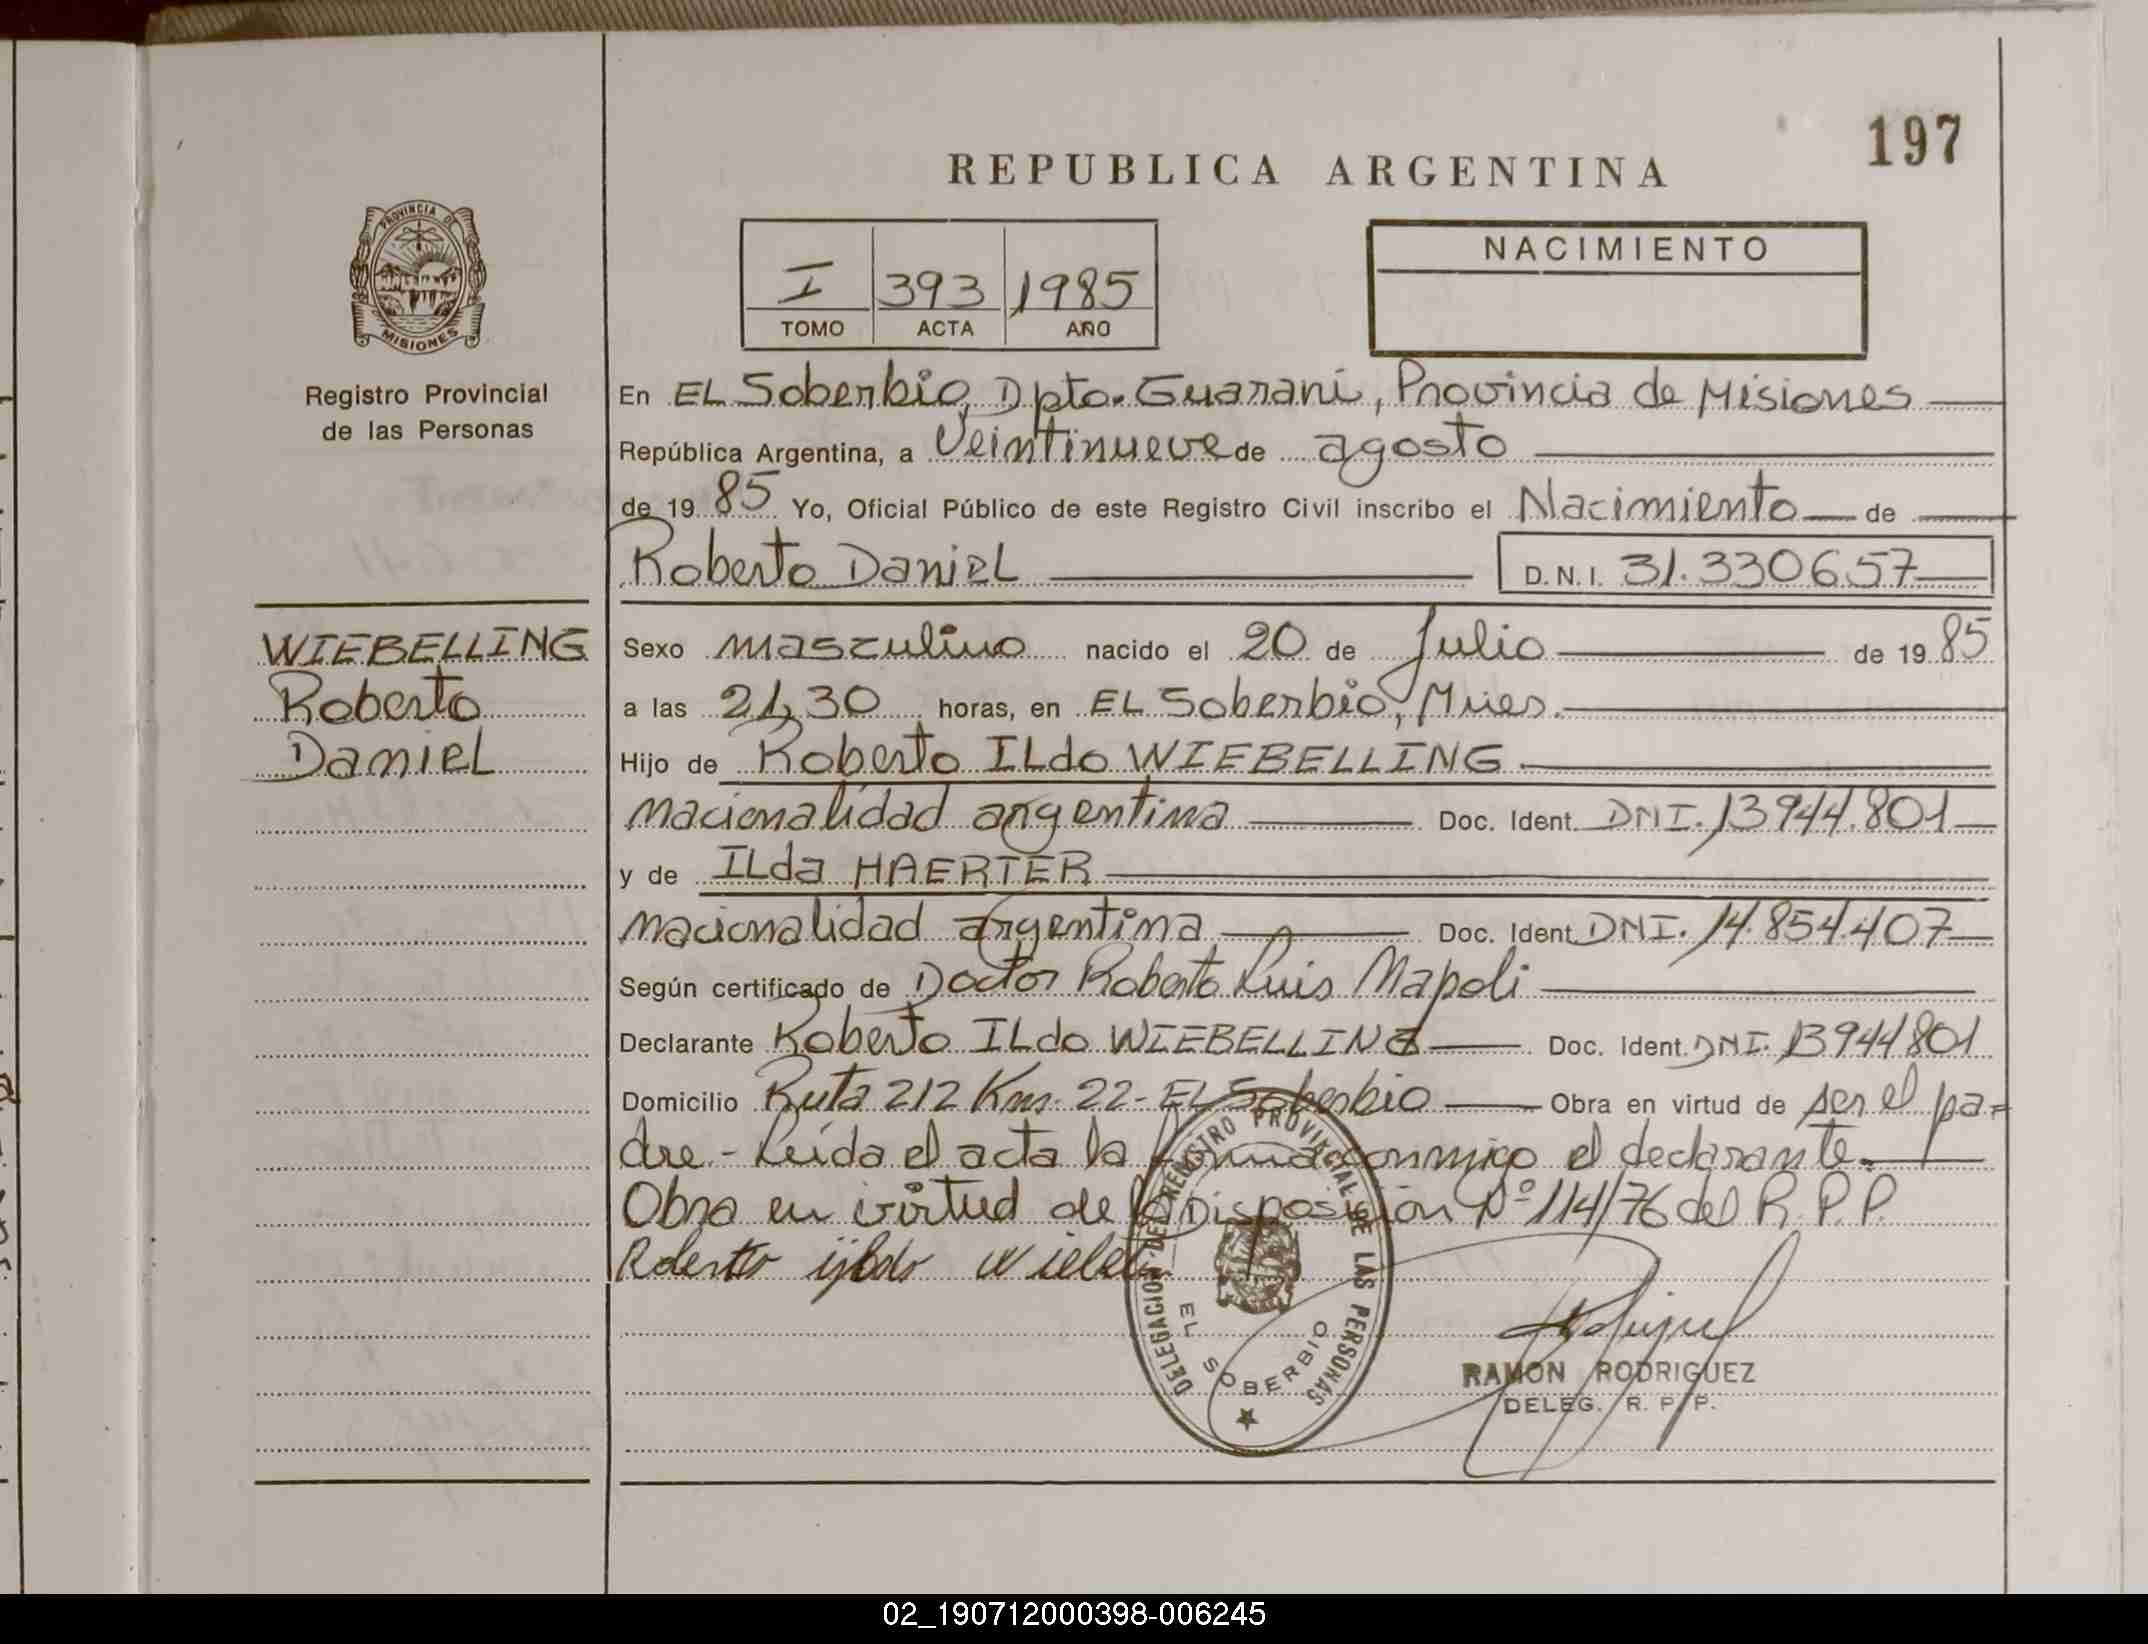 197
REPUBLICA ARGENTINA
PROVINCIA DE
MISIONES
Registro Provincial
de las Personas
I 393 1985
TOMO ACTA AÑO
NACIMIENTO
En EL Soberbio, Dpto. Guaraní, Provincia de Misiones
República Argentina, a Veintinueve de agosto
de 1985 Yo, Oficial Público de este Registro Civil inscribo el Nacimiento de
Roberto Daniel D.N.I. 31.330657
WIEBELLING
Roberto
Daniel
Sexo masculino nacido el 20 de Julio de 1985
a las 21,30 horas, en EL Soberbio, Mnes.
Hijo de Roberto ILdo WIEBELLING
nacionalidad argentina Doc. Ident. DNI. 13944.801
y de ILda HAERTER
nacionalidad argentina Doc. Ident DNI. 14.854.407
Según certificado de Doctor Roberto Luis Napoli
Declarante Roberto ILdo WIEBELLING Doc. Ident. DNI. 13944801
Domicilio Ruta 212 Km. 22- EL Soberbio Obra en virtud de ser el pa-
dre - Leída el acta la firma conmigo el declarante.
Obra en virtud de la Disposición Nº 114/76 del R.P.P.
Roberto
DELEGACION DEL REGISTRO PROVINCIAL DE LAS PERSONAS
EL SOBERBIO
RAMON RODRIGUEZ
DELEG. R. P. P.
02_190712000398-006245